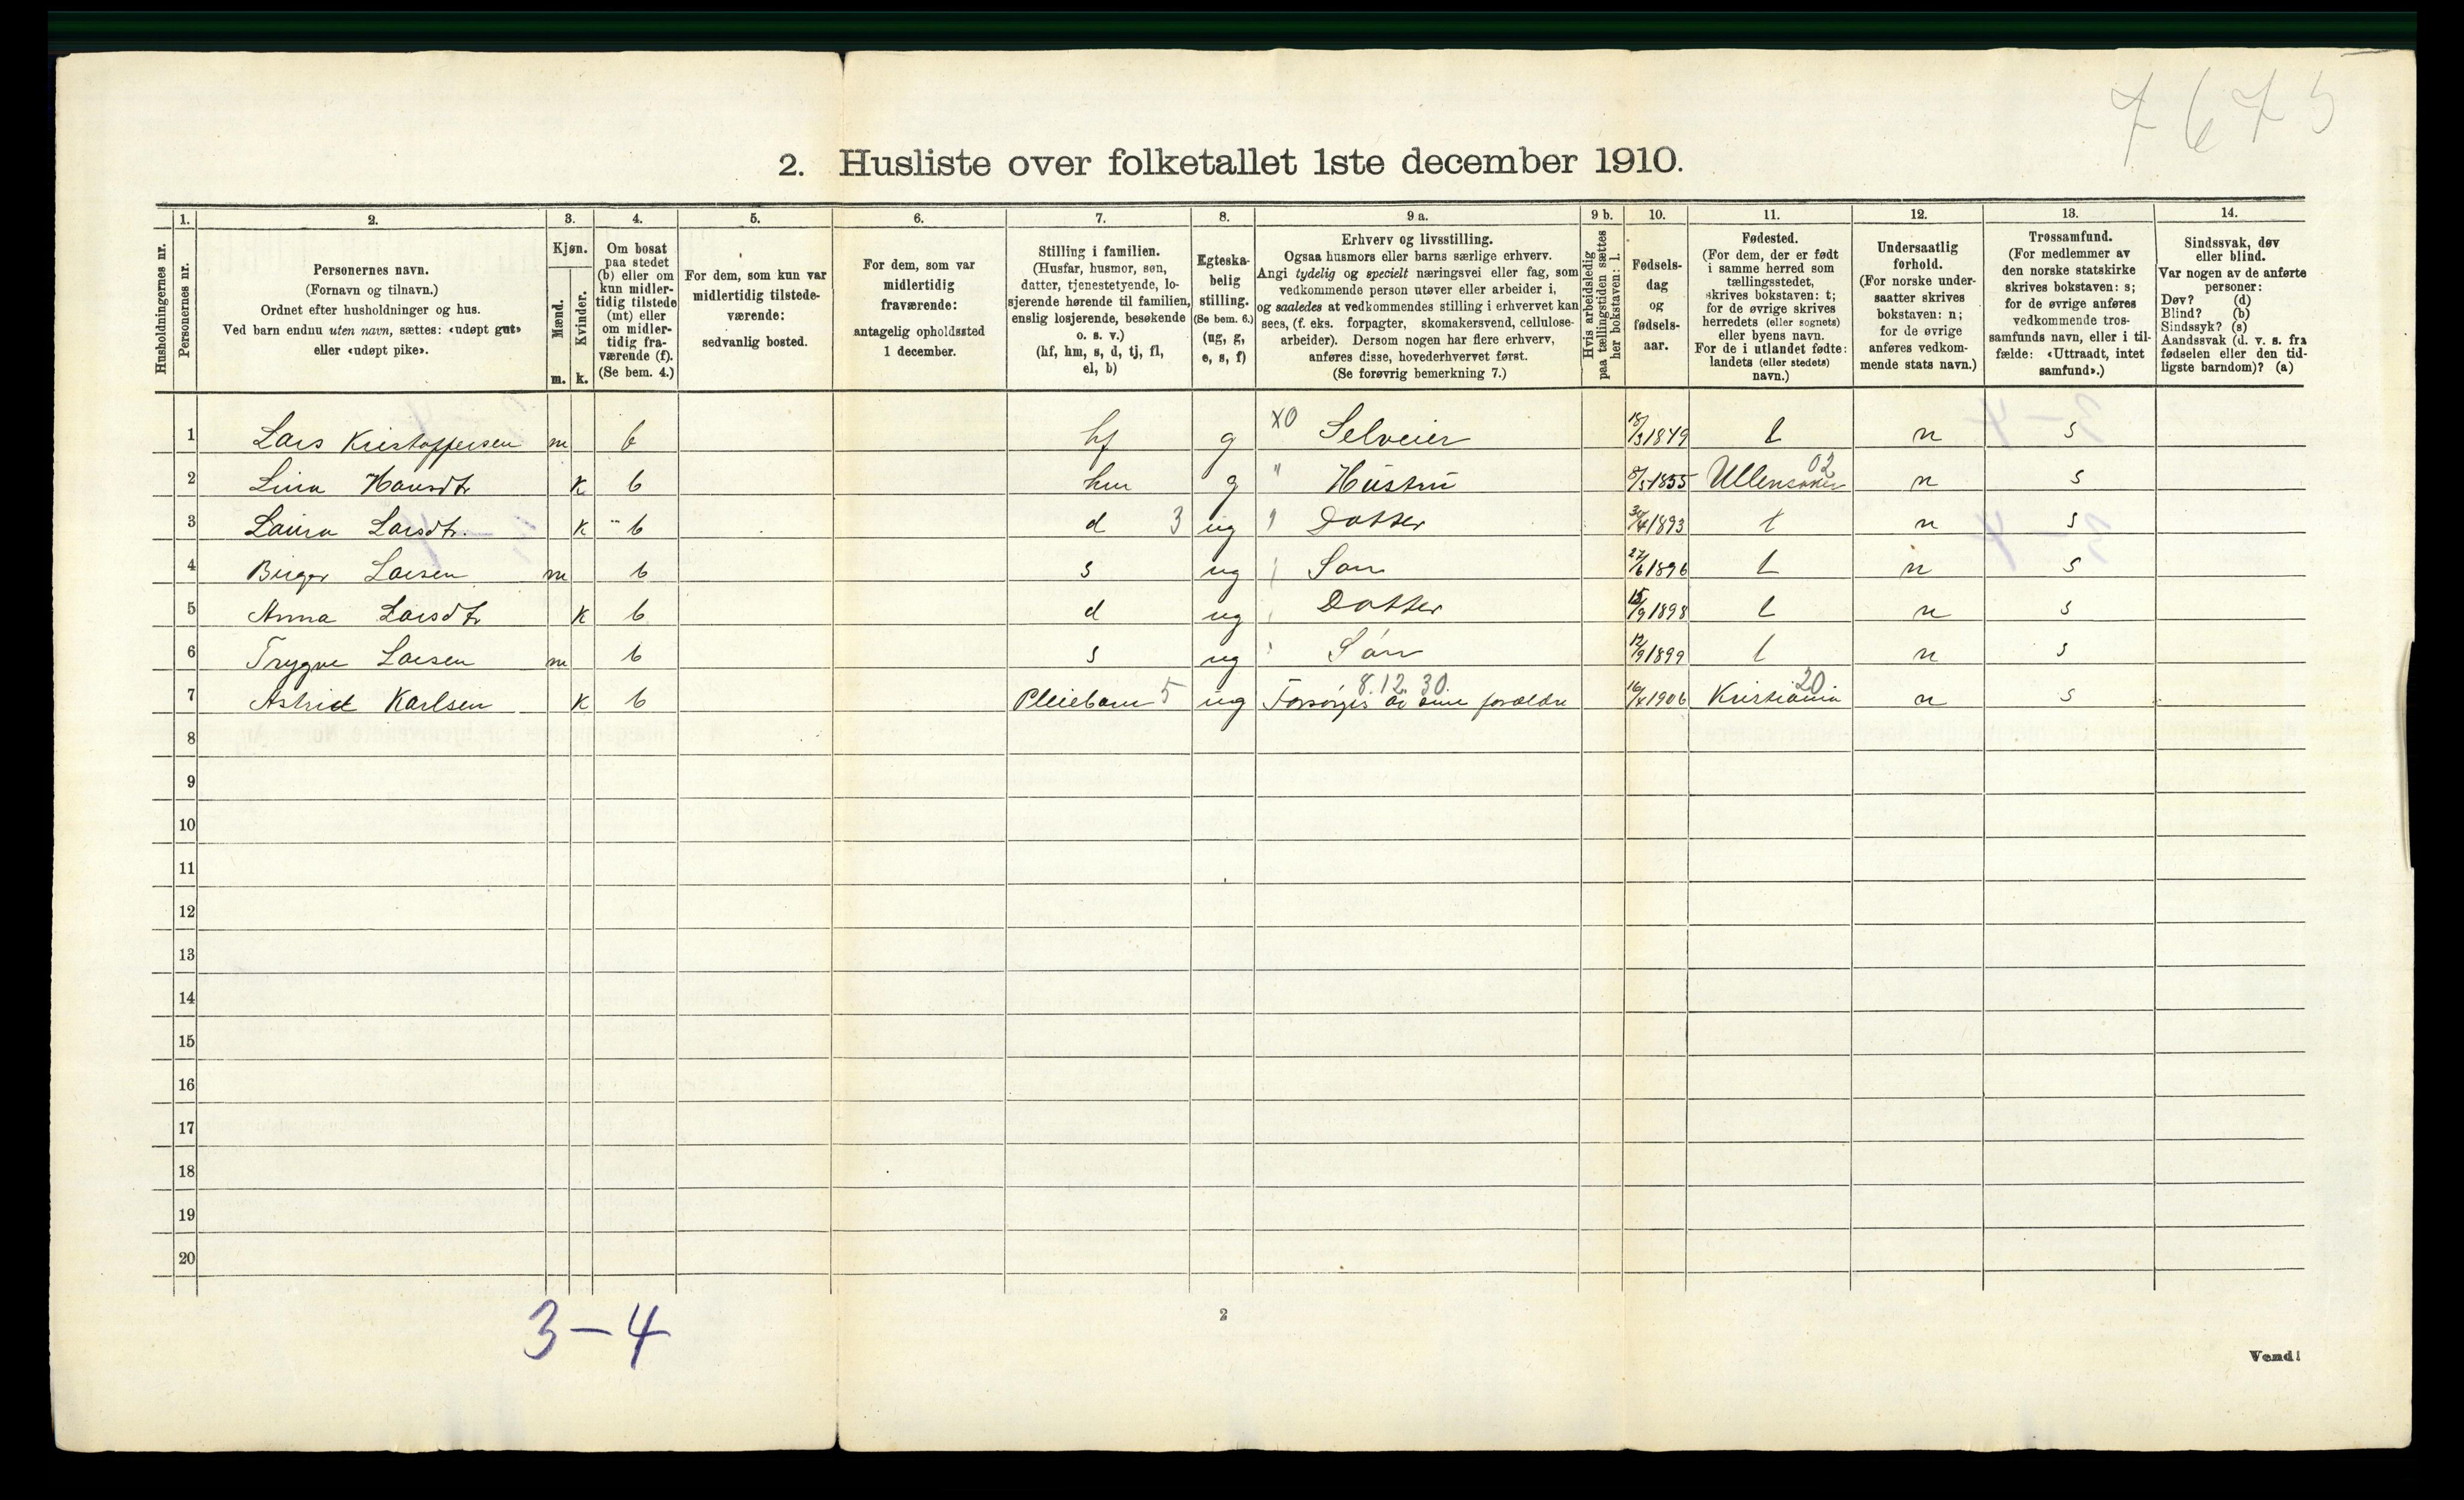 7675
2. Husliste over folketallet 1ste december 1910.
Husholdningernes nr.
1.
Personernes nr.
2.
Personernes navn.
(Fornavn og tilnavn.)
Ordnet efter husholdninger og hus.
Ved barn endnu uten navn, sættes: «udøpt gut»
eller «udøpt pike».
3.
Kjøn.
Mænd.
m.
Kvinder.
k.
4.
Om bosat
paa stedet
(b) eller om
kun midler-
tidig tilstede
(mt) eller
om midler-
tidig fra-
værende (f).
(Se bem. 4.)
5.
For dem, som kun var
midlertidig tilstede-
værende:
sedvanlig bosted.
6.
For dem, som var
midlertidig
fraværende:
antagelig opholdssted
1 december.
7.
Stilling i familien.
(Husfar, husmor, søn,
datter, tjenestetyende, lo-
sjerende hørende til familien,
enslig losjerende, besøkende
o. s. v.)
(hf, hm, s, d, tj, fl,
el, b)
8.
Egteska-
belig
stilling.
(Se bem. 6.)
(ug, g,
e, s, f)
9 a.
Erhverv og livsstilling.
Ogsaa husmors eller barns særlige erhverv.
Angi tydelig og specielt næringsvei eller fag, som
vedkommende person utøver eller arbeider i,
og saaledes at vedkommendes stilling i erhvervet kan
sees, (f. eks. forpagter, skomakersvend, cellulose-
arbeider). Dersom nogen har flere erhverv,
anføres disse, hovederhvervet først.
(Se forøvrig bemerkning 7.)
9 b.
Hvis arbeidsledig
paa tællingstiden sættes
her bokstaven: l.
10.
Fødsels-
dag
og
fødsels-
aar.
11.
Fødested.
(For dem, der er født
i samme herred som
tællingsstedet,
skrives bokstaven: t;
for de øvrige skrives
herredets (eller sognets)
eller byens navn.
For de i utlandet fødte:
landets (eller stedets)
navn.)
12.
Undersaatlig
forhold.
(For norske under-
saatter skrives
bokstaven: n;
for de øvrige
anføres vedkom-
mende stats navn.)
13.
Trossamfund.
(For medlemmer av
den norske statskirke
skrives bokstaven: s;
for de øvrige anføres
vedkommende tros-
samfunds navn, eller i til-
fælde: «Uttraadt, intet
samfund».)
14.
Sindssvak, døv
eller blind.
Var nogen av de anførte
personer:
Døv? (d)
Blind? (b)
Sindssyk? (s)
Aandssvak (d. v. s. fra
fødselen eller den tid-
ligste barndom)? (a)
1 Lars Kristoffersen m b hf g XO Selveier 18/3 1849 t n s
2 Lina Hansdtr k b hm g " Hustru 8/5 1855 Ullensaker 02 n s
3 Laura Larsdtr. k b d 3 ug " Datter 30/4 1893 t n s
4 Birger Larsen m b s ug Søn 27/6 1896 t n s
5 Anna Larsdtr k b d ug Datter 15/9 1898 t n s
6 Trygve Larsen m b s ug Søn 12/9 1899 t n s
7 Astrid Karlsen k b Pleiebarn 5 ug 8.12.30. Forsørges av sine forældre 1906 Kristiania 20 n s
8
9
10
11
12
13
14
15
16
17
18
19
20
3-4
2
Vend!